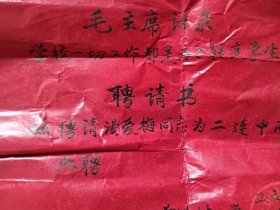 毛主席语录
学校一切工作都是为了转变学生
聘请书
兹聘请汤爱梅同志为二连中
此聘